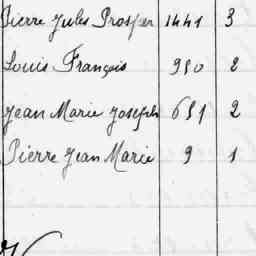 Pierre Jules Prosper 1441 3
Louis François 950 2
Jean Marie Joseph 651 2
Pierre Jean Marie 9 1